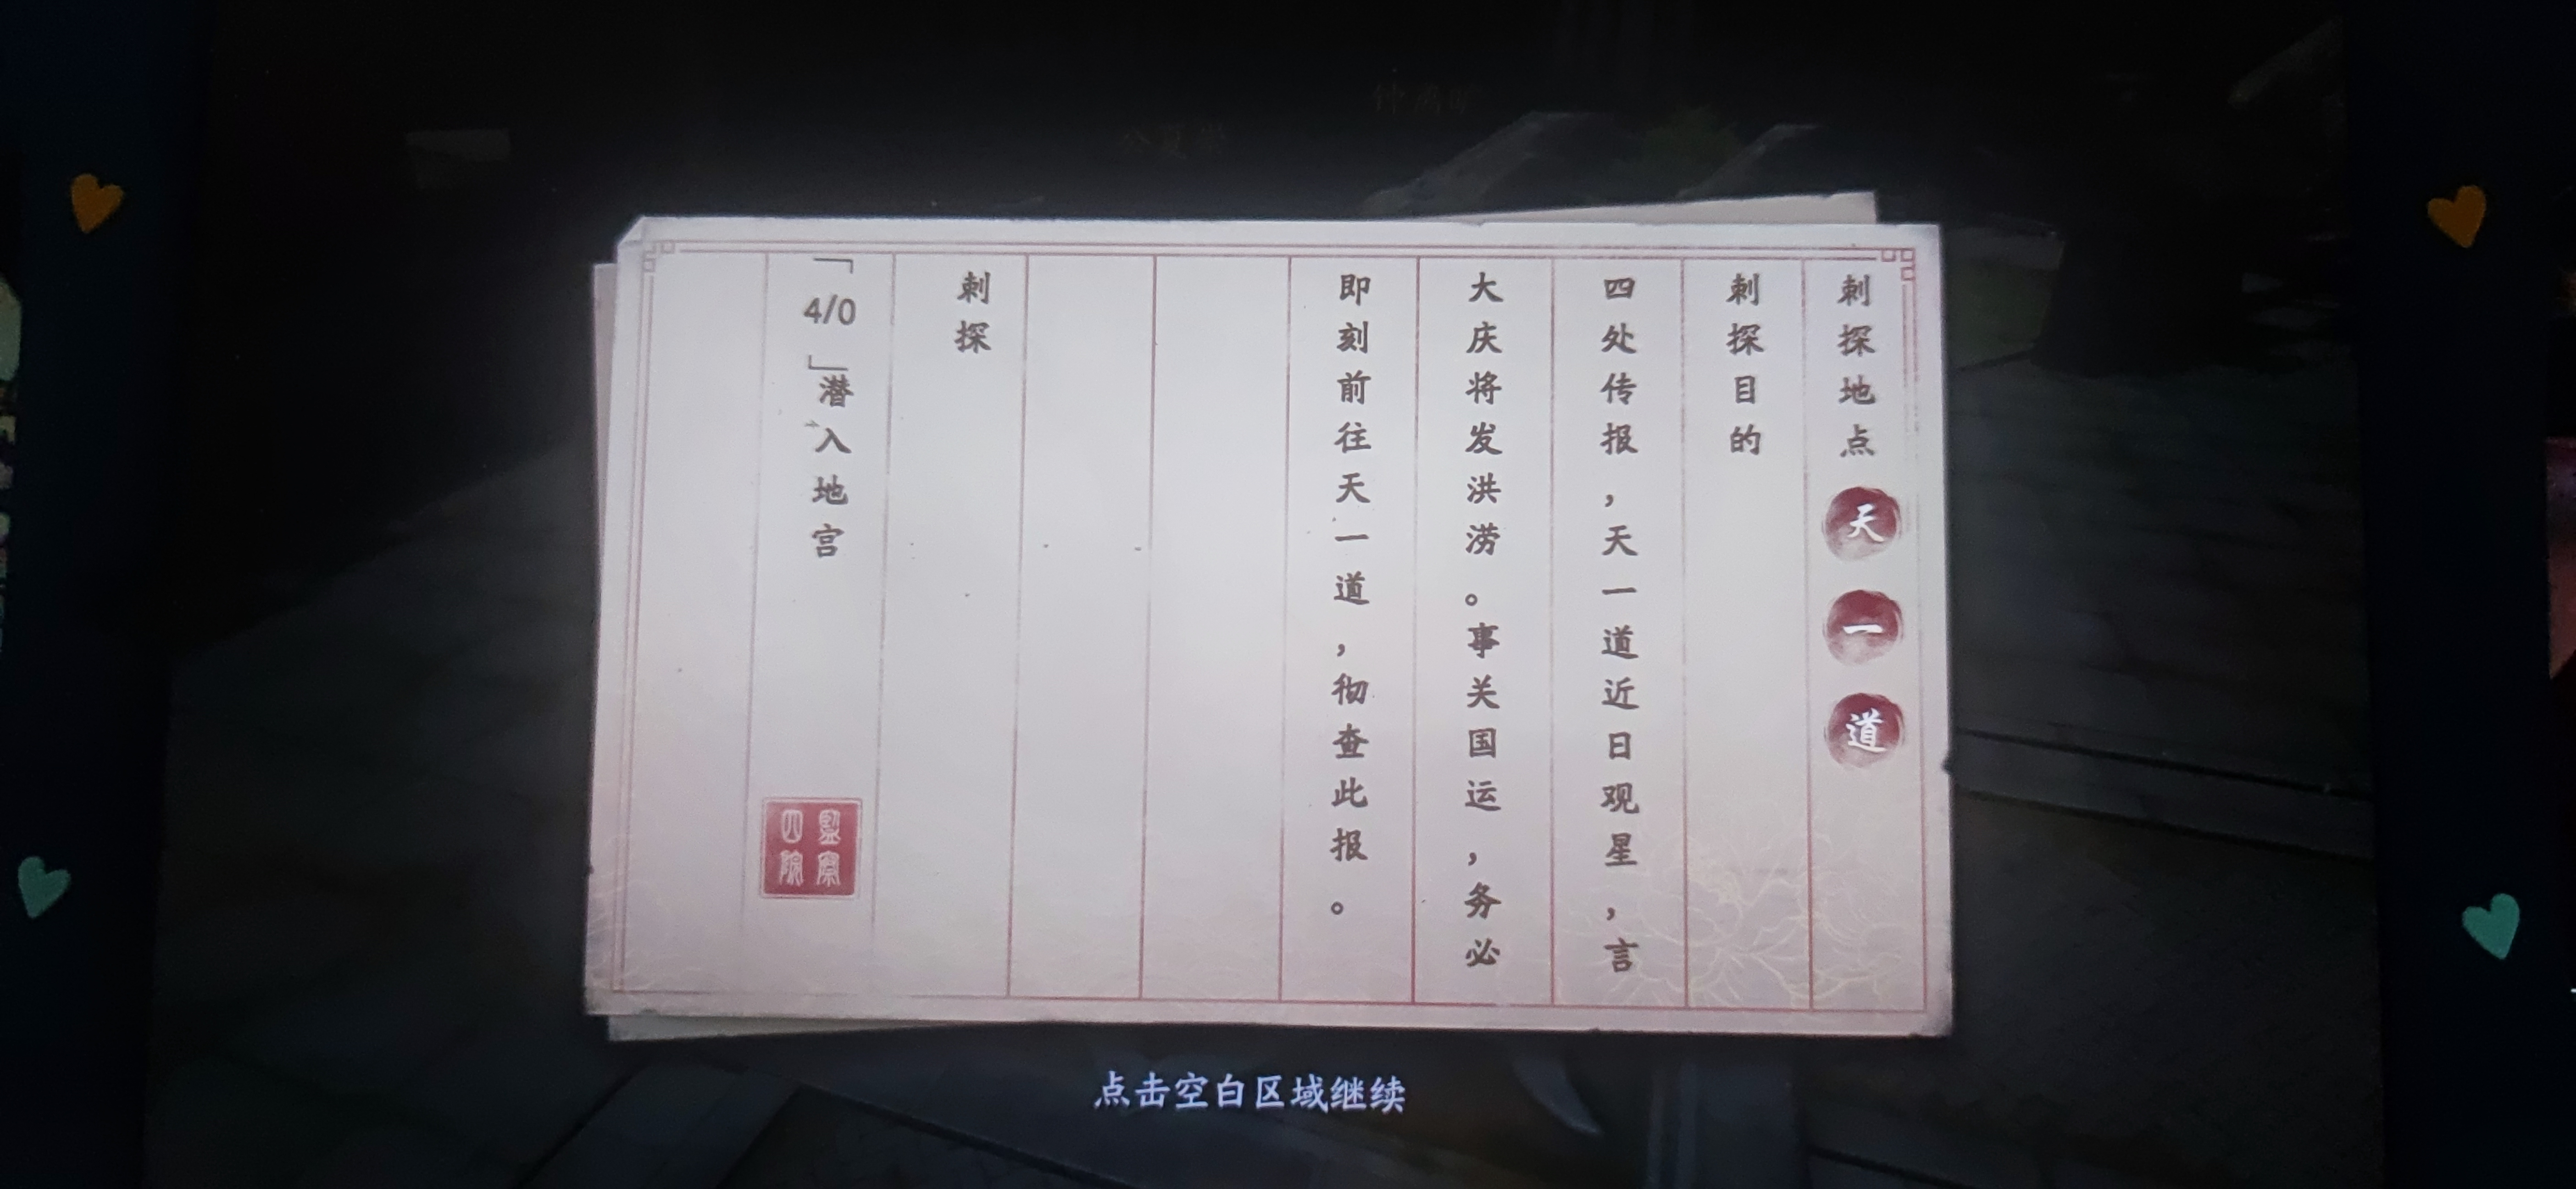 刺探地点 天一道
刺探目的
四处传报，天一道近日观星，言
大庆将发洪涝。事关国运，务必
即刻前往天一道，彻查此报。
刺探
「4/0」潜入地宫
監察
四院
点击空白区域继续